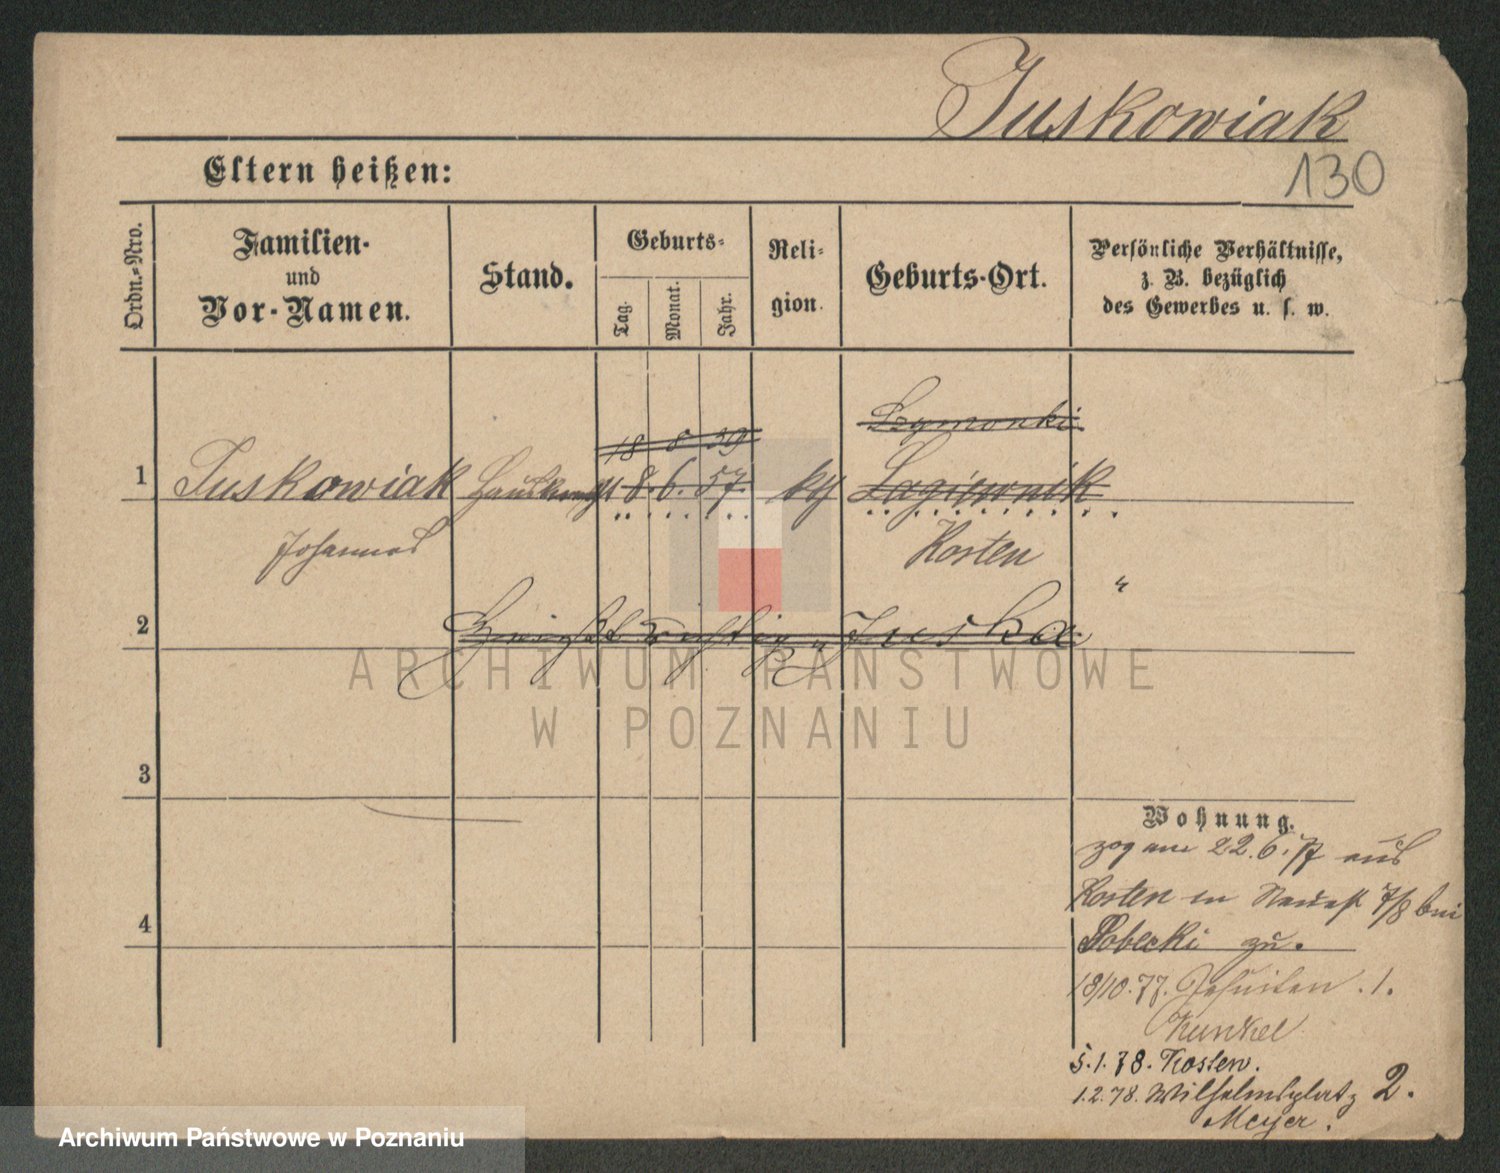 Juskowiak
130
Eltern heißen:
Ordn.-Nro.
Familien-
und
Vor-Namen.
Stand.
Geburts-
Tag.
Monat.
Jahr.
Reli-
gion.
Geburts-Ort.
Persönliche Verhältnisse,
z. B. bezüglich
des Gewerbes u. s. w.
Szymonki
18 8 39
1 Juskowiak Hausknecht 8. 6. 57. Lagiewnik
Johannes Kosten
2 heißt richtig Juska
ARCHIWUM PAŃSTWOWE
W POZNANIU
3
Wohnung.
zog am 22.6.77 aus
Kosten in 7/8 bei
4 Sobecki zu.
18/10.77. Jesuiten . 1.
Kunkel
5.1.78. Kosten.
1.2.78. Wilhelmsplatz 2.
Meyer.
Archiwum Państwowe w Poznaniu